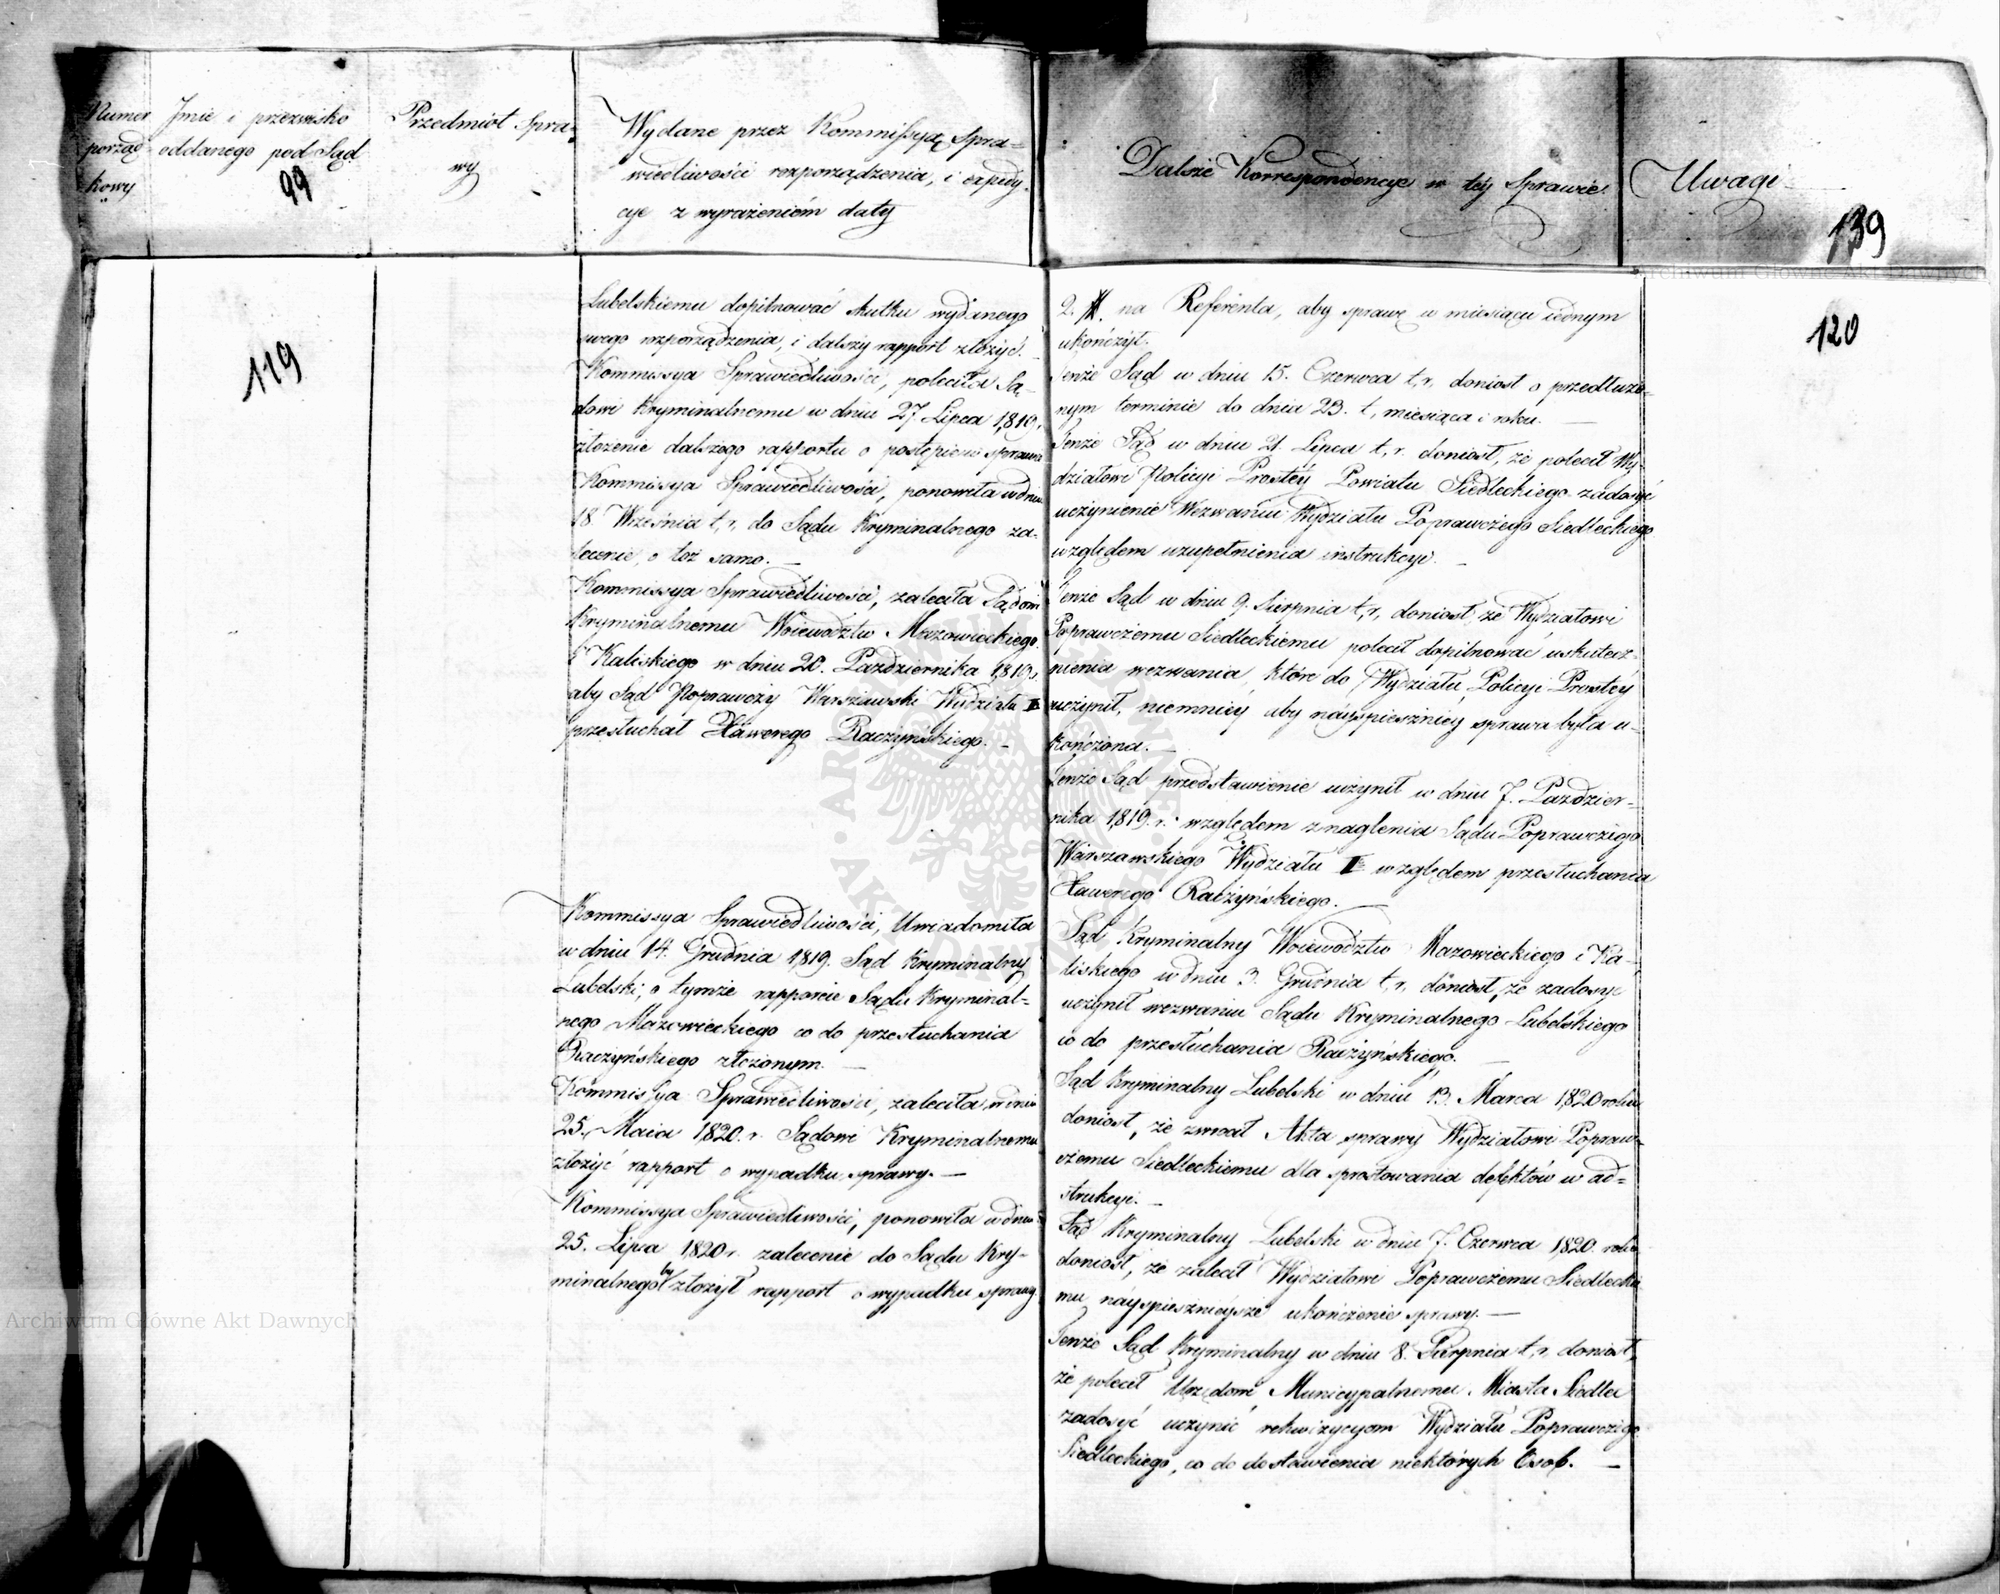 Numer
porząd-
kowy
Jmie i przezwisko
oddanego pod Sąd
99
Przedmiot Spra-
wy
Wydane przez Kommissyą Spra-
wiedliwości rozporządzenia, i expedy-
cye z wyrażeniem daty
Dalsze Korrespondencye w téy Sprawie
Uwagi
139
119
Lubelskiemu dopilnować skutku wydanego
swego rozporządzenia, i dalszy rapport złożyć. —
Kommissya Sprawiedliwości, poleciła Są-
dowi Kryminalnemu w dniu 27 Lipca 1819 r.
złożenie dalszego rapportu o postępie sprawy
Kommissya Sprawiedliwości, ponowiła w dniu
18. Września t. r. do Sądu Kryminalnego za-
lecenie, o toż samo. —
Kommissya Sprawiedliwości, zaleciła Sądowi
Kryminalnemu Województw Mazowieckiego
i Kaliskiego w dniu 20. Października 1819 r.
aby Sąd Poprawczy Warszawski Wydziału II
przesłuchał Xawerego Raczyńskiego. —
Kommissya Sprawiedliwości, Uwiadomiła
w dniu 14. Grudnia 1819. Sąd Kryminalny
Lubelski, o tymże rapporcie Sądu Kryminal-
nego Mazowieckiego co do przesłuchania
Raczyńskiego złożonym. —
Kommissya Sprawiedliwości, zaleciła w dniu
25. Maia 1820. r. Sądowi Kryminalnemu
złożyć rapport o wypadku sprawy. —
Kommissya Sprawiedliwości, ponowiła w dniu
25. Lipca 1820 r. zalecenie do Sądu Kry-
minalnego by złożył rapport o wypadku sprawy
120
2. na Referenta, aby sprawę w miesiącu iednym
ukończył.
Tenże Sąd w dniu 15. Czerwca t. r. doniosł o przedłużo-
nym terminie do dnia 23. t. miesiąca i roku. —
Tenże Sąd w dniu 21. Lipca t. r. doniosł, że polecił Wy-
działowi Policyi Prostéy Powiatu Siedleckiego zadosyć
uczynienie Wezwaniu Wydziału Poprawczego Siedleckiego
względem uzupełnienia instrukcyi. —
Tenże Sąd w dniu 9. Sierpnia t. r. doniosł, że Wydziałowi
Poprawczemu Siedleckiemu polecił dopilnować uskutecz-
nienia wezwania, które do Wydziału Policyi Prostéy
uczynił, niemniéy aby náyspieszniéy sprawa była u-
kończona. —
Tenże Sąd przedstawienie uczynił w dniu 7. Paździer-
nika 1819. r. względem znaglenia Sądu Poprawczego
Warszawskiego Wydziału II względem przesłuchania
Xawerego Raczyńskiego. —
Sąd Kryminalny Województw Mazowieckiego i Ka-
liskiego w dniu 3. Grudnia t. r. doniosł, że zadosyć
uczynił wezwaniu Sądu Kryminalnego Lubelskiego
co do przesłuchania Raczyńskiego. —
Sąd Kryminalny Lubelski w dniu 13. Marca 1820 roku
doniosł, że zwrócił Akta sprawy Wydziałowi Popraw-
czemu Siedleckiemu dla sprostowania defektów w ad-
strukcyi. —
Sąd Kryminalny Lubelski w dniu 7. Czerwca 1820. roku
doniosł, że zalecił Wydziałowi Poprawczemu Siedleckie-
mu náyspiesznieysze ukończenie sprawy. —
Tenże Sąd Kryminalny w dniu 8. Sierpnia t. r. doniosł,
że polecił Urzędowi Municypalnemu Miasta Siedlec
zadosyć uczynić rekwizycyom Wydziału Poprawczego
Siedleckiego, co do dostawienia niektórych Osob. —
Archiwum Główne Akt Dawnych
Archiwum Główne Akt Dawnych